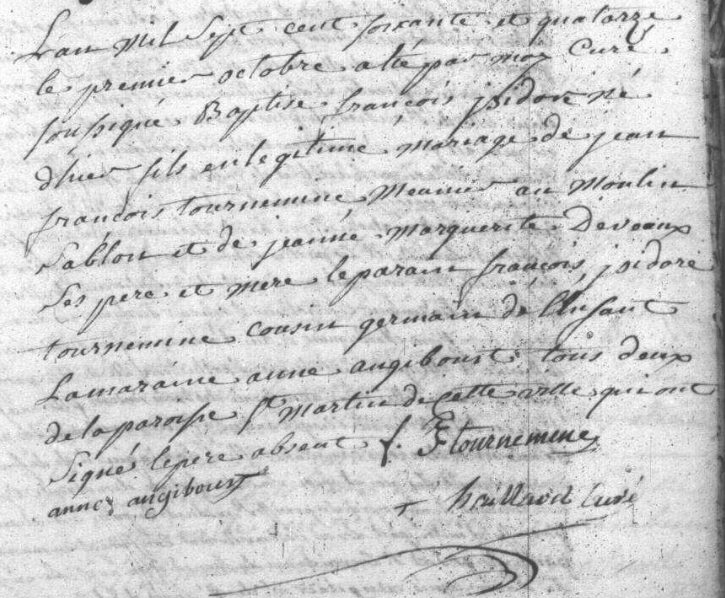 L'an mil Sept cent soixante et quatorze
le premier octobre a été par moy Curé
soussigné Baptisé françois isidore né
d'hier fils en legitime mariage de jean
françois tournemine meunier au moulin
Sablon et de jeanne marguerite Deveaux
Ses pere et mere le parain françois isidore
tournemine cousin germain de l'Enfant
La maraine anne angiboust tous deux
de la paroisse St martin de cette ville qui ont
Signé le pere absent f. F tournemine
anne angiboust
Curé